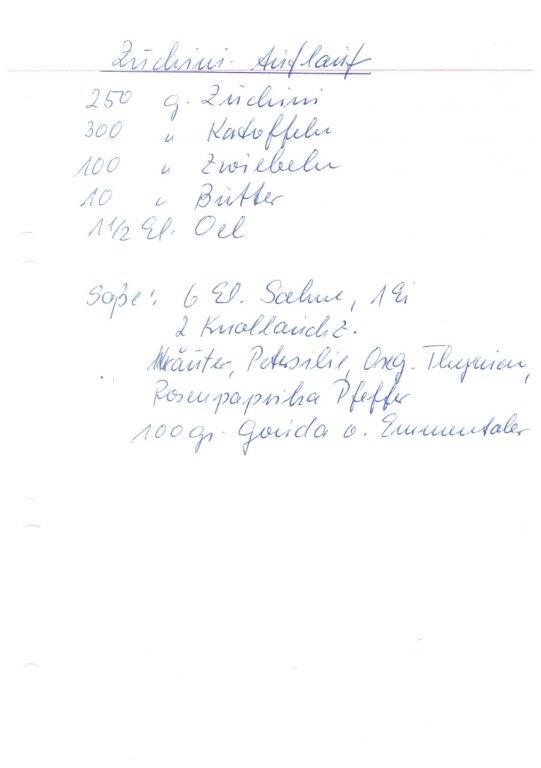 Zuchini-Auflauf
250 g. Zuchini
300 " Kartoffeln
100 " Zwiebeln
10 " Butter
1 1/2 El. Oel
Soße: 6 El. Sahne, 1 Ei
2 Knoblauchz.
Kräuter, Petersilie, Oreg. Thymian,
Rosenpaprika Pfeffer
100 gr. Gouda o. Emmentaler